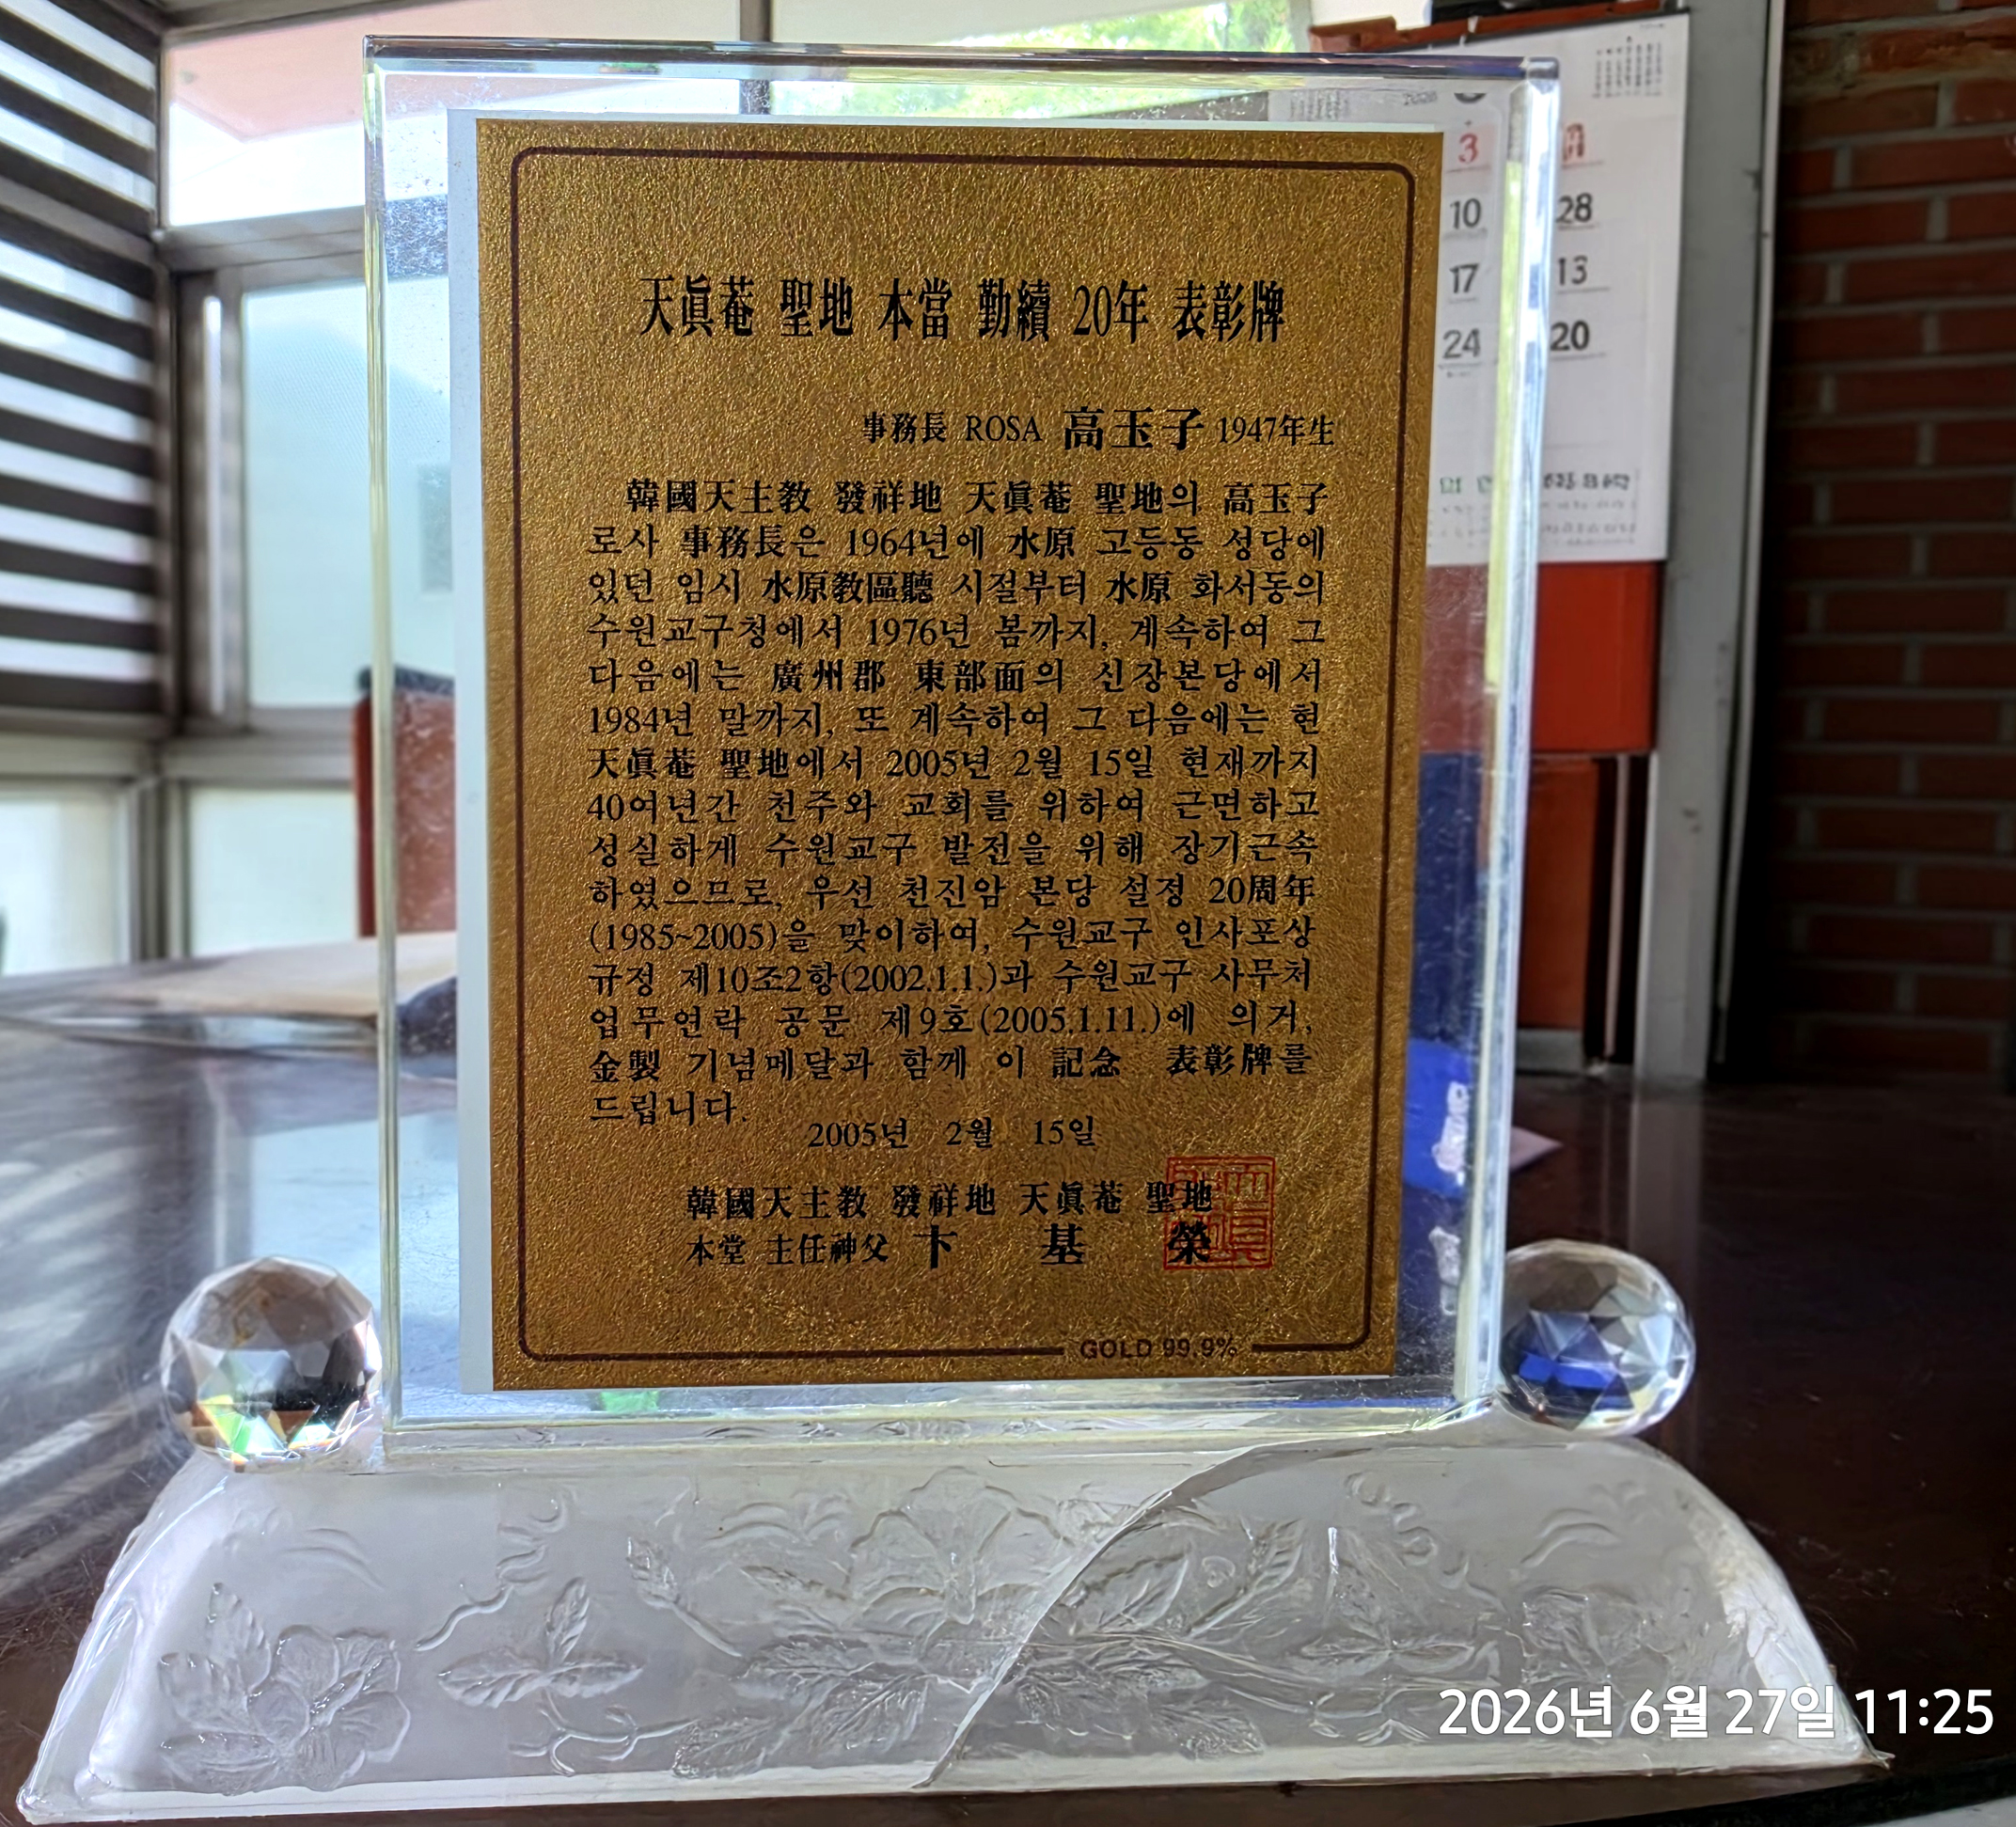 天眞菴 聖地 本當 勤續 20年 表彰牌
事務長 ROSA 高玉子 1947年生
韓國天主敎 發祥地 天眞菴 聖地의 高玉子
로사 事務長은 1964년에 水原 고등동 성당에
있던 임시 水原敎區聽 시절부터 水原 화서동의
수원교구청에서 1976년 봄까지, 계속하여 그
다음에는 廣州郡 東部面의 신장본당에서
1984년 말까지, 또 계속하여 그 다음에는 현
天眞菴 聖地에서 2005년 2월 15일 현재까지
40여년간 천주와 교회를 위하여 근면하고
성실하게 수원교구 발전을 위해 장기근속
하였으므로, 우선 천진암 본당 설정 20周年
(1985~2005)을 맞이하여, 수원교구 인사포상
규정 제10조2항(2002.1.1.)과 수원교구 사무처
업무연락 공문 제9호(2005.1.11.)에 의거,
金製 기념메달과 함께 이 記念 表彰牌를
드립니다.
2005년 2월 15일
韓國天主敎 發祥地 天眞菴 聖地
本堂 主任神父 卞 基 榮
GOLD 99.9%
3
10 28
17 13
24 20
2026년 6월 27일 11:25